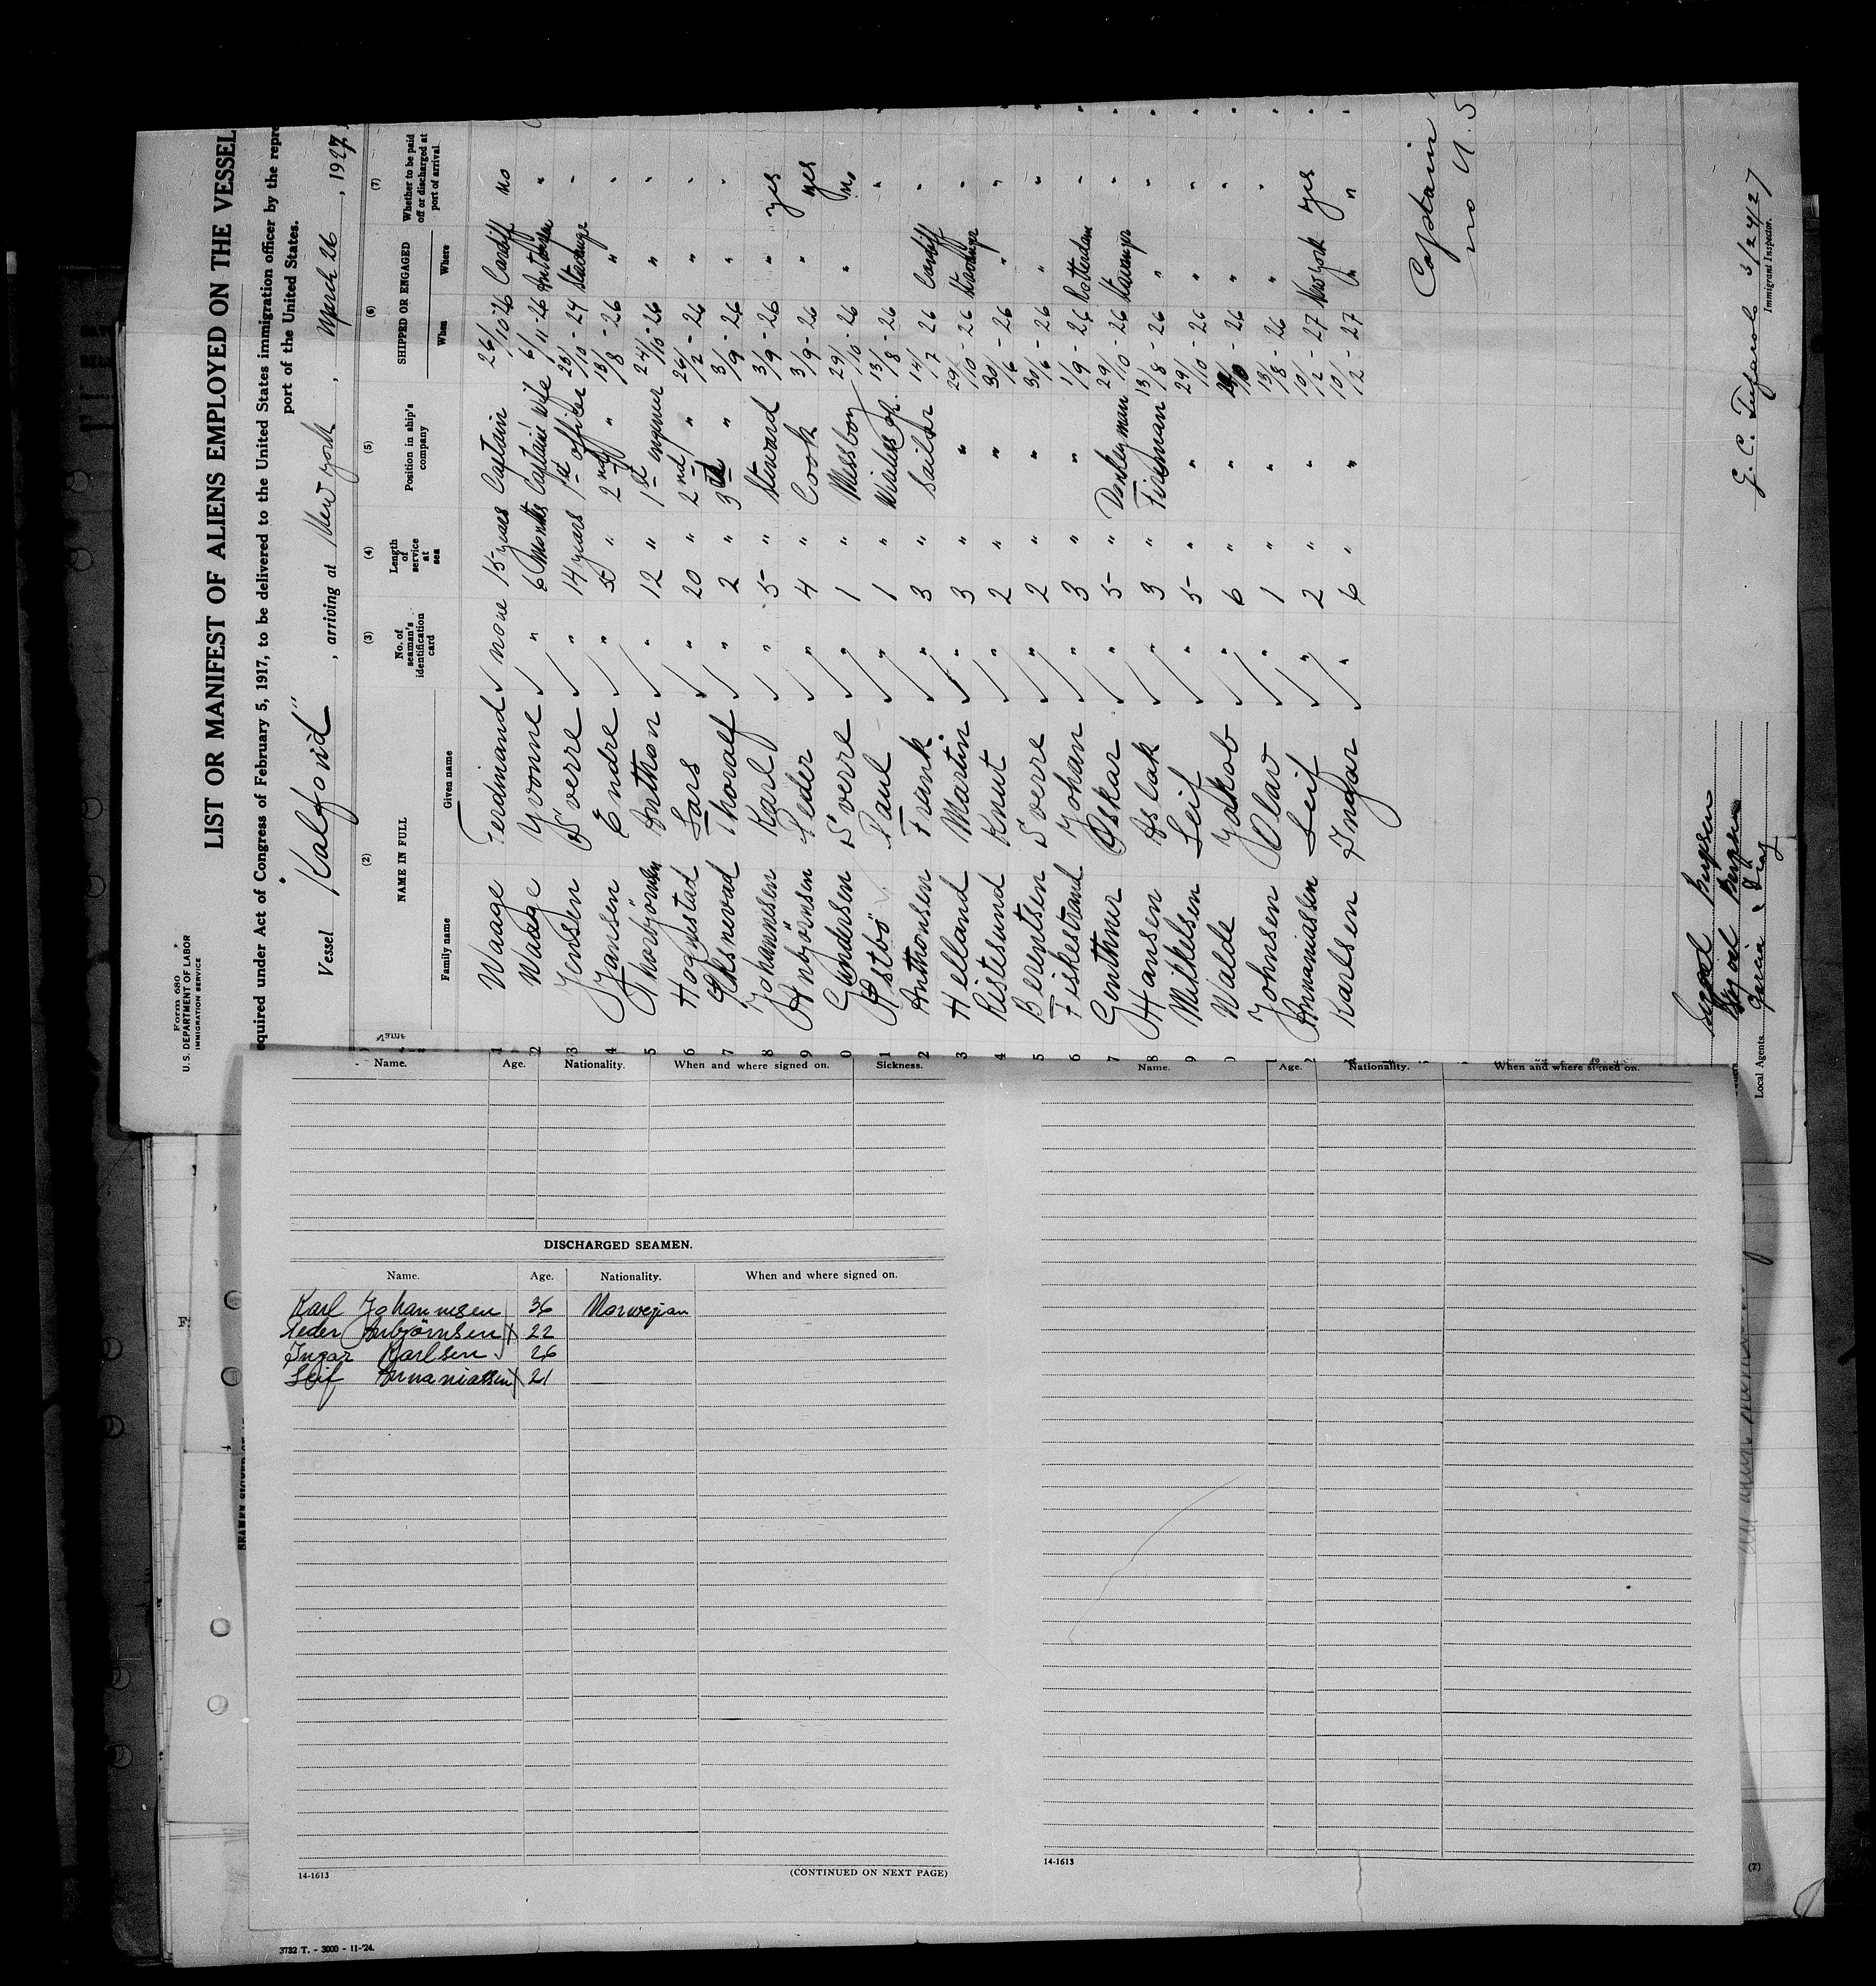 Form 680
U.S. DEPARTMENT OF LABOR
IMMIGRATION SERVICE
LIST OR MANIFEST OF ALIENS EMPLOYED ON THE VESSEL
equired under Act of Congress of February 5, 1917, to be delivered to the United States immigration officer by the repre
port of the United States.
Vessel "Kalfond" , arriving at New York , March 26 , 1927,
(2) (3) (4) (5) (6) (7)
NAME IN FULL No. of seaman's identification card Length of service at sea Position in ship's company SHIPPED OR ENGAGED Whether to be paid off or discharged at port of arrival
Family name Given name When Where
1 Waage Ferdinand none 15 years Captain 26/10-26 Cardiff no
2 Waage Yvonne " 6 Months Captains Wife 6/11-26 "
3 Jensen Sverre " 14 years 1st officer - 24 Stavanger "
4 Jansen Endre " 5 " 2nd " 13/8 - 26 " "
5 Thorbjörnsen Anthon " 12 " 1st engineer 24/10-26 " "
6 Hognestad Lars " 20 " 2nd " 26/2 - 26 " "
7 Eksnevad Thoralf " 2 " 3rd " 3/9 - 26 " "
8 Johannesen Karl " 5 " Steward 3/9 - 26 " yes
9 Anbjörnsen Peder " 4 " Cook 3/9 - 26 " yes
0 Gundersen Sverre " 1 " Messboy 29/10-26 " no
1 Østbö Paul " 1 " Wireless op. 13/8 - 26 "
2 Anthonsen Frank " 3 " Sailor 14/7 26 Cardiff "
3 Helland Martin " 3 " " 29/10 - 26 Stavanger "
4 Ristesund Knut " 2 " " 30/6 - 26 " "
5 Berentsen Sverre " 2 " " 30/6 - 26 " "
6 Fiskestrand Johan " 3 " " 1/9 - 26 Rotterdam "
7 Genthner Oskar " 5 " Donkeyman 29/10 - 26 Stavanger "
8 Hansen Aslak " 3 " Fireman 13/8 - 26 " "
9 Mikkelsen Leif " 5 " " 29/10 - 26 " "
0 Walde Jakob " 6 " " /10 - 26 " "
1 Johnsen Olav " 1 " " 13/8 - 26 " "
2 Annaniassen Leif " 2 " " 10/2 - 27 New York yes
Karlsen Ingar " 6 " " 10/2 - 27 " "
Captain
no U. S
3/24/27
Immigrant Inspector.
Local Agents
Name. Age. Nationality. When and where signed on. Sickness.
Name. Age. Nationality. When and where signed on.
DISCHARGED SEAMEN.
Name. Age. Nationality. When and where signed on.
Karl Johannesen 36 Norwegian
Peder Anbjörnsen 22
Ingar Karlsen 26
Leif Annaniassen 21
14-1613 (CONTINUED ON NEXT PAGE)
14-1613
(7)
3732 T. - 3000 - 11-'24.